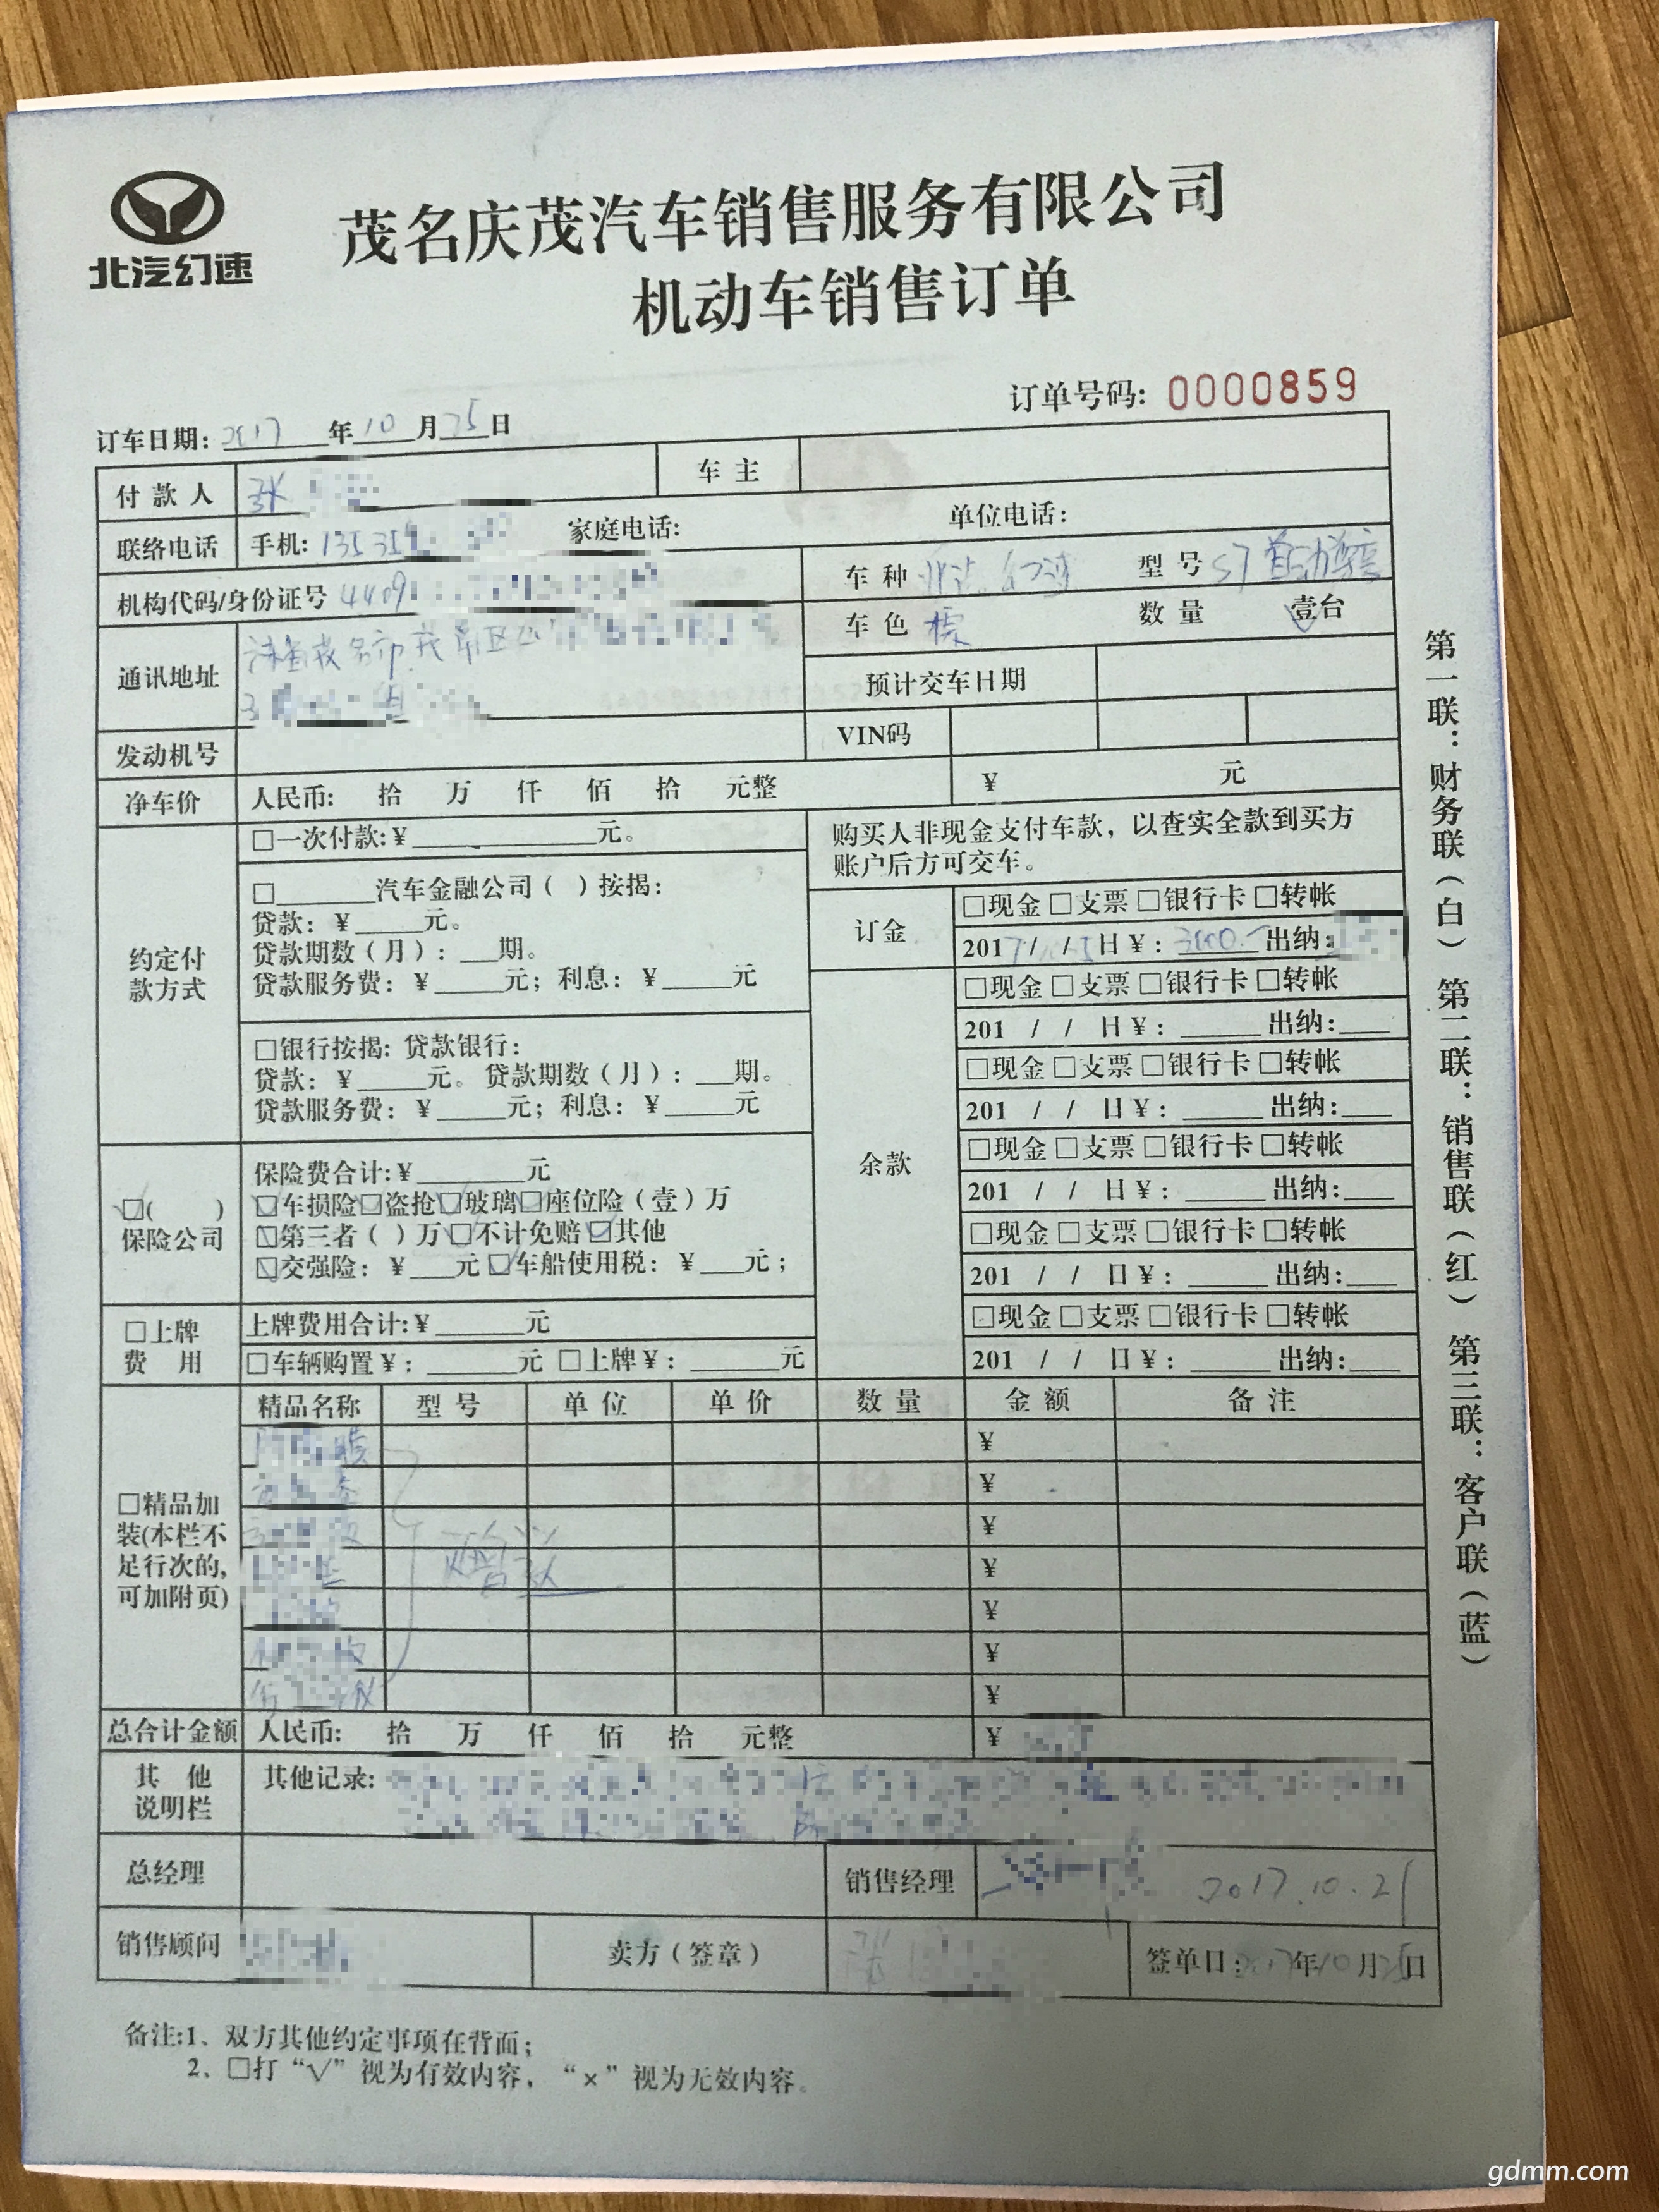 北汽幻速
茂名庆茂汽车销售服务有限公司
机动车销售订单
订单号码: 0000859
订车日期: 2017 年 10 月 25 日
付款人 张 车主
联络电话 手机: 13535 家庭电话: 单位电话:
机构代码/身份证号 4409 车种 北汽 幻速 型号 S7 自动尊享
车色 棕 数量 壹台
通讯地址 茂名市 茂南区
3
预计交车日期
发动机号 VIN码
净车价 人民币: 拾 万 仟 佰 拾 元整 ¥ 元
约定付款方式
□一次付款:¥ 元。
□ 汽车金融公司（ ）按揭:
贷款: ¥ 元。
贷款期数（月）: 期。
贷款服务费: ¥ 元; 利息: ¥ 元
□银行按揭: 贷款银行:
贷款: ¥ 元。贷款期数（月）: 期。
贷款服务费: ¥ 元; 利息: ¥ 元
购买人非现金支付车款，以查实全款到买方
账户后方可交车。
订金
□现金 □支票 □银行卡 □转帐
2017 / / 日 ¥: 3000 出纳:
余款
□现金 □支票 □银行卡 □转帐
201 / / 日 ¥: 出纳:
□现金 □支票 □银行卡 □转帐
201 / / 日 ¥: 出纳:
□现金 □支票 □银行卡 □转帐
201 / / 日 ¥: 出纳:
□现金 □支票 □银行卡 □转帐
201 / / 日 ¥: 出纳:
□现金 □支票 □银行卡 □转帐
201 / / 日 ¥: 出纳:
□( )
保险公司
保险费合计:¥ 元
□车损险□盗抢□玻璃□座位险（壹）万
□第三者（ ）万□不计免赔□其他
□交强险: ¥ 元 □车船使用税: ¥ 元;
□上牌
费 用
上牌费用合计:¥ 元
□车辆购置 ¥: 元 □上牌 ¥: 元
□精品加
装(本栏不
足行次的,
可加附页)
精品名称 型号 单位 单价 数量 金额 备注
膜 ¥
¥
¥
赠送 ¥
¥
¥
¥
总合计金额 人民币: 拾 万 仟 佰 拾 元整 ¥
其 他
说明栏
其他记录:
总经理 销售经理 2017.10.25
销售顾问 卖方（签章） 张 签单日: 2017 年 10 月 25 日
备注:1、双方其他约定事项在背面;
2、□打“√”视为有效内容，“×”视为无效内容。
第一联：财务联（白） 第二联：销售联（红） 第三联：客户联（蓝）
gdmm.com